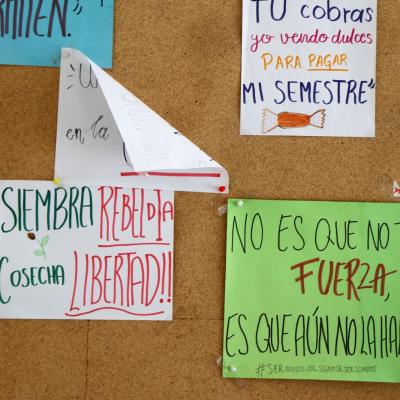 RMITEN."
TÚ cobras
yo vendo dulces
PARA PAGAR
MI SEMESTRE"
"U
en la
SIEMBRA REBELDIA
COSECHA LIBERTAD!!
NO ES QUE NO T
FUERZA,
ES QUE AÚN NO LA HA